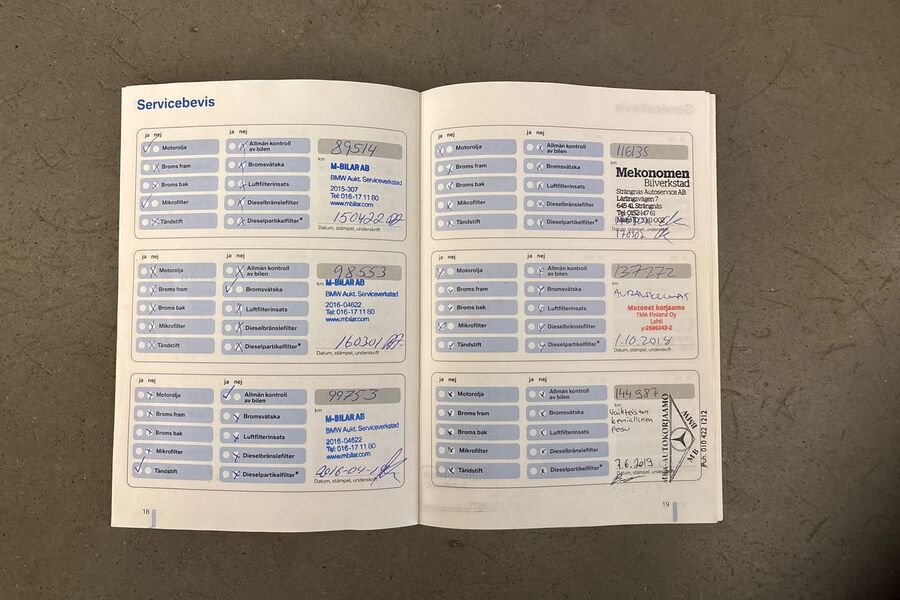 Servicebevis
ja nej
Motorolja
Broms fram
Broms bak
Mikrofilter
Tändstift
ja nej
Allmän kontroll
av bilen
Bromsvätska
Luftfilterinsats
Dieselbränslefilter
Dieselpartikelfilter*
89514
km
M-BILAR AB
BMW Aukt. Serviceverkstad
2015-307
Tel: 016-17 11 80
www.mbilar.com
150422
Datum, stämpel, underskrift
ja nej
Motorolja
Broms fram
Broms bak
Mikrofilter
Tändstift
ja nej
Allmän kontroll
av bilen
Bromsvätska
Luftfilterinsats
Dieselbränslefilter
Dieselpartikelfilter*
98553
km
M-BILAR AB
BMW Aukt. Serviceverkstad
2016-04622
Tel: 016-17 11 80
www.mbilar.com
160301
Datum, stämpel, underskrift
ja nej
Motorolja
Broms fram
Broms bak
Mikrofilter
Tändstift
ja nej
Allmän kontroll
av bilen
Bromsvätska
Luftfilterinsats
Dieselbränslefilter
Dieselpartikelfilter*
99753
km
M-BILAR AB
BMW Aukt. Serviceverkstad
2016-04622
Tel: 016-17 11 80
www.mbilar.com
2016-04-1
Datum, stämpel, underskrift
18
ja nej
Motorolja
Broms fram
Broms bak
Mikrofilter
Tändstift
ja nej
Allmän kontroll
av bilen
Bromsvätska
Luftfilterinsats
Dieselbränslefilter
Dieselpartikelfilter*
116135
km
Mekonomen
Bilverkstad
Strängnäs Autoservice AB
Lärlingsvägen 7
645 41 Strängnäs
Tel: 0152-147 61
Datum, stämpel, underskrift
170302
ja nej
Motorolja
Broms fram
Broms bak
Mikrofilter
Tändstift
ja nej
Allmän kontroll
av bilen
Bromsvätska
Luftfilterinsats
Dieselbränslefilter
Dieselpartikelfilter*
137272
km
Motonet korjaamo
TMA Finland Oy
Lahti
y:2586243-2
1.10.2018
Datum, stämpel, underskrift
ja nej
Motorolja
Broms fram
Broms bak
Mikrofilter
Tändstift
ja nej
Allmän kontroll
av bilen
Bromsvätska
Luftfilterinsats
Dieselbränslefilter
Dieselpartikelfilter*
144987
km
Vaihteiston
kemiallinen
pesu
7.6.2019
Datum, stämpel, underskrift
MBA-AUTOKORJAAMO
MB BMW
Puh. 010 422 1212
19